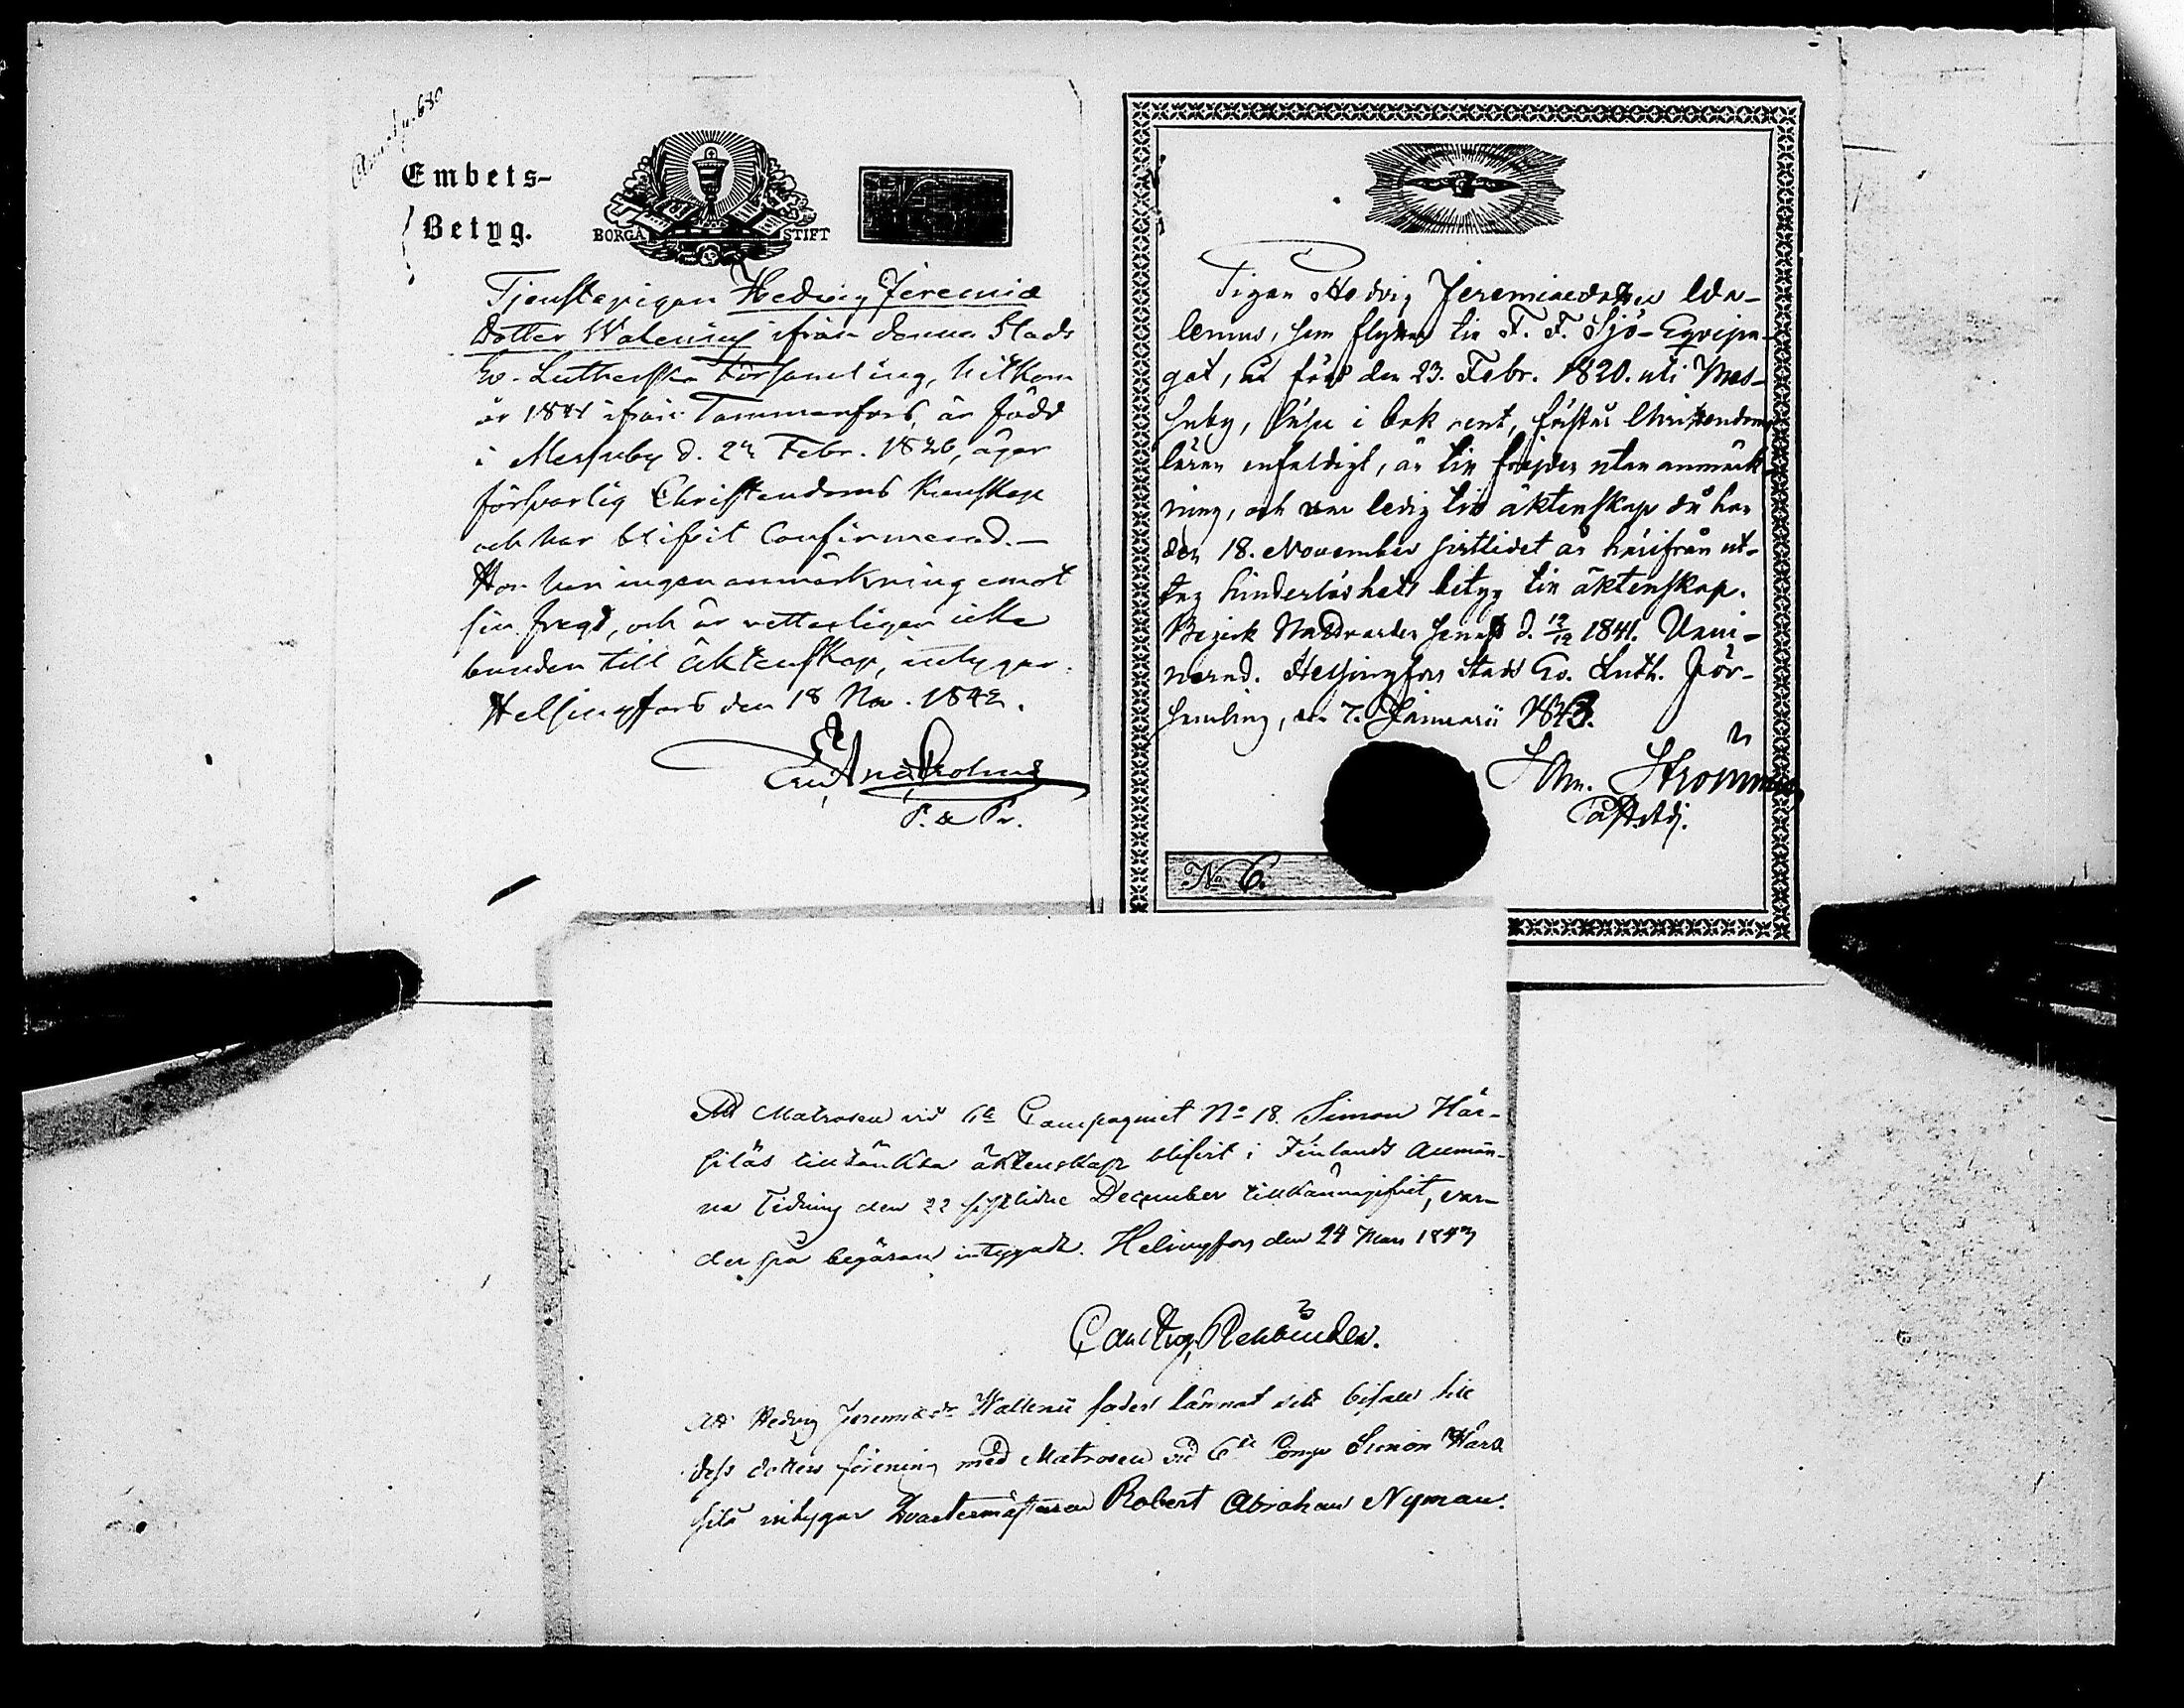 Embets-
Betyg.
BORGÅ STIFT
Tjenstepigan Hedvig Jeremiæ
Dotter Walenius ifrån denna Stads
Ev. Lutherska Församling, hitkom
år 1841 ifrån Tammerfors, är född
i Messuby d. 23 Febr. 1820, äger
försvarlig Christendoms Kunskap
och har blifvit Confirmerad.-
Hon har ingen anmärkning emot
sin fregd, och är vetterligen icke
bunden till äktenskap, intygar.
Helsingfors den 18 Nov. 1842.
P. & Pr.
Pigan Hedvig Jeremiaedotter Wa-
lenius, som flyttar till F. F. Sjö-Eqvipa-
get, är född den 23. Febr. 1820. uti Mes-
suby, läser i bok rent, förstår Christendoms
läran enfaldigt, är till frejden utan anmärk-
ning, och var ledig till äktenskap då hon
den 18. November sistlidet år härifrån ut-
tog hinderlöshets betyg till äktenskap.
Begick Nattvarden senast d. 12/12 1841. Vacci-
nerad. Helsingfors Stads Ev. Luth. För-
samling, den 7. Januarii 1843.
Joh. Strömm
Past. Adj.
No 6.
Att Matrosen vid 6te Compagniet No 18. Simon Här-
siläs tilltänkta äktenskap blifvit i Finlands Allmän-
na Tidning den 22 sistlidne December tillkännagifvit, var-
der på begäran intygadt. Helsingfors den 24 Mars 1843
Rehbinder.
Att Hedvig Jeremiædr Wallenii fader lämnat sitt bifall till
dess dotters förening med Matrosen vid 6te Comp. Simon Härd
silä intygar Qvartermästaren Robert Abraham Nyman.